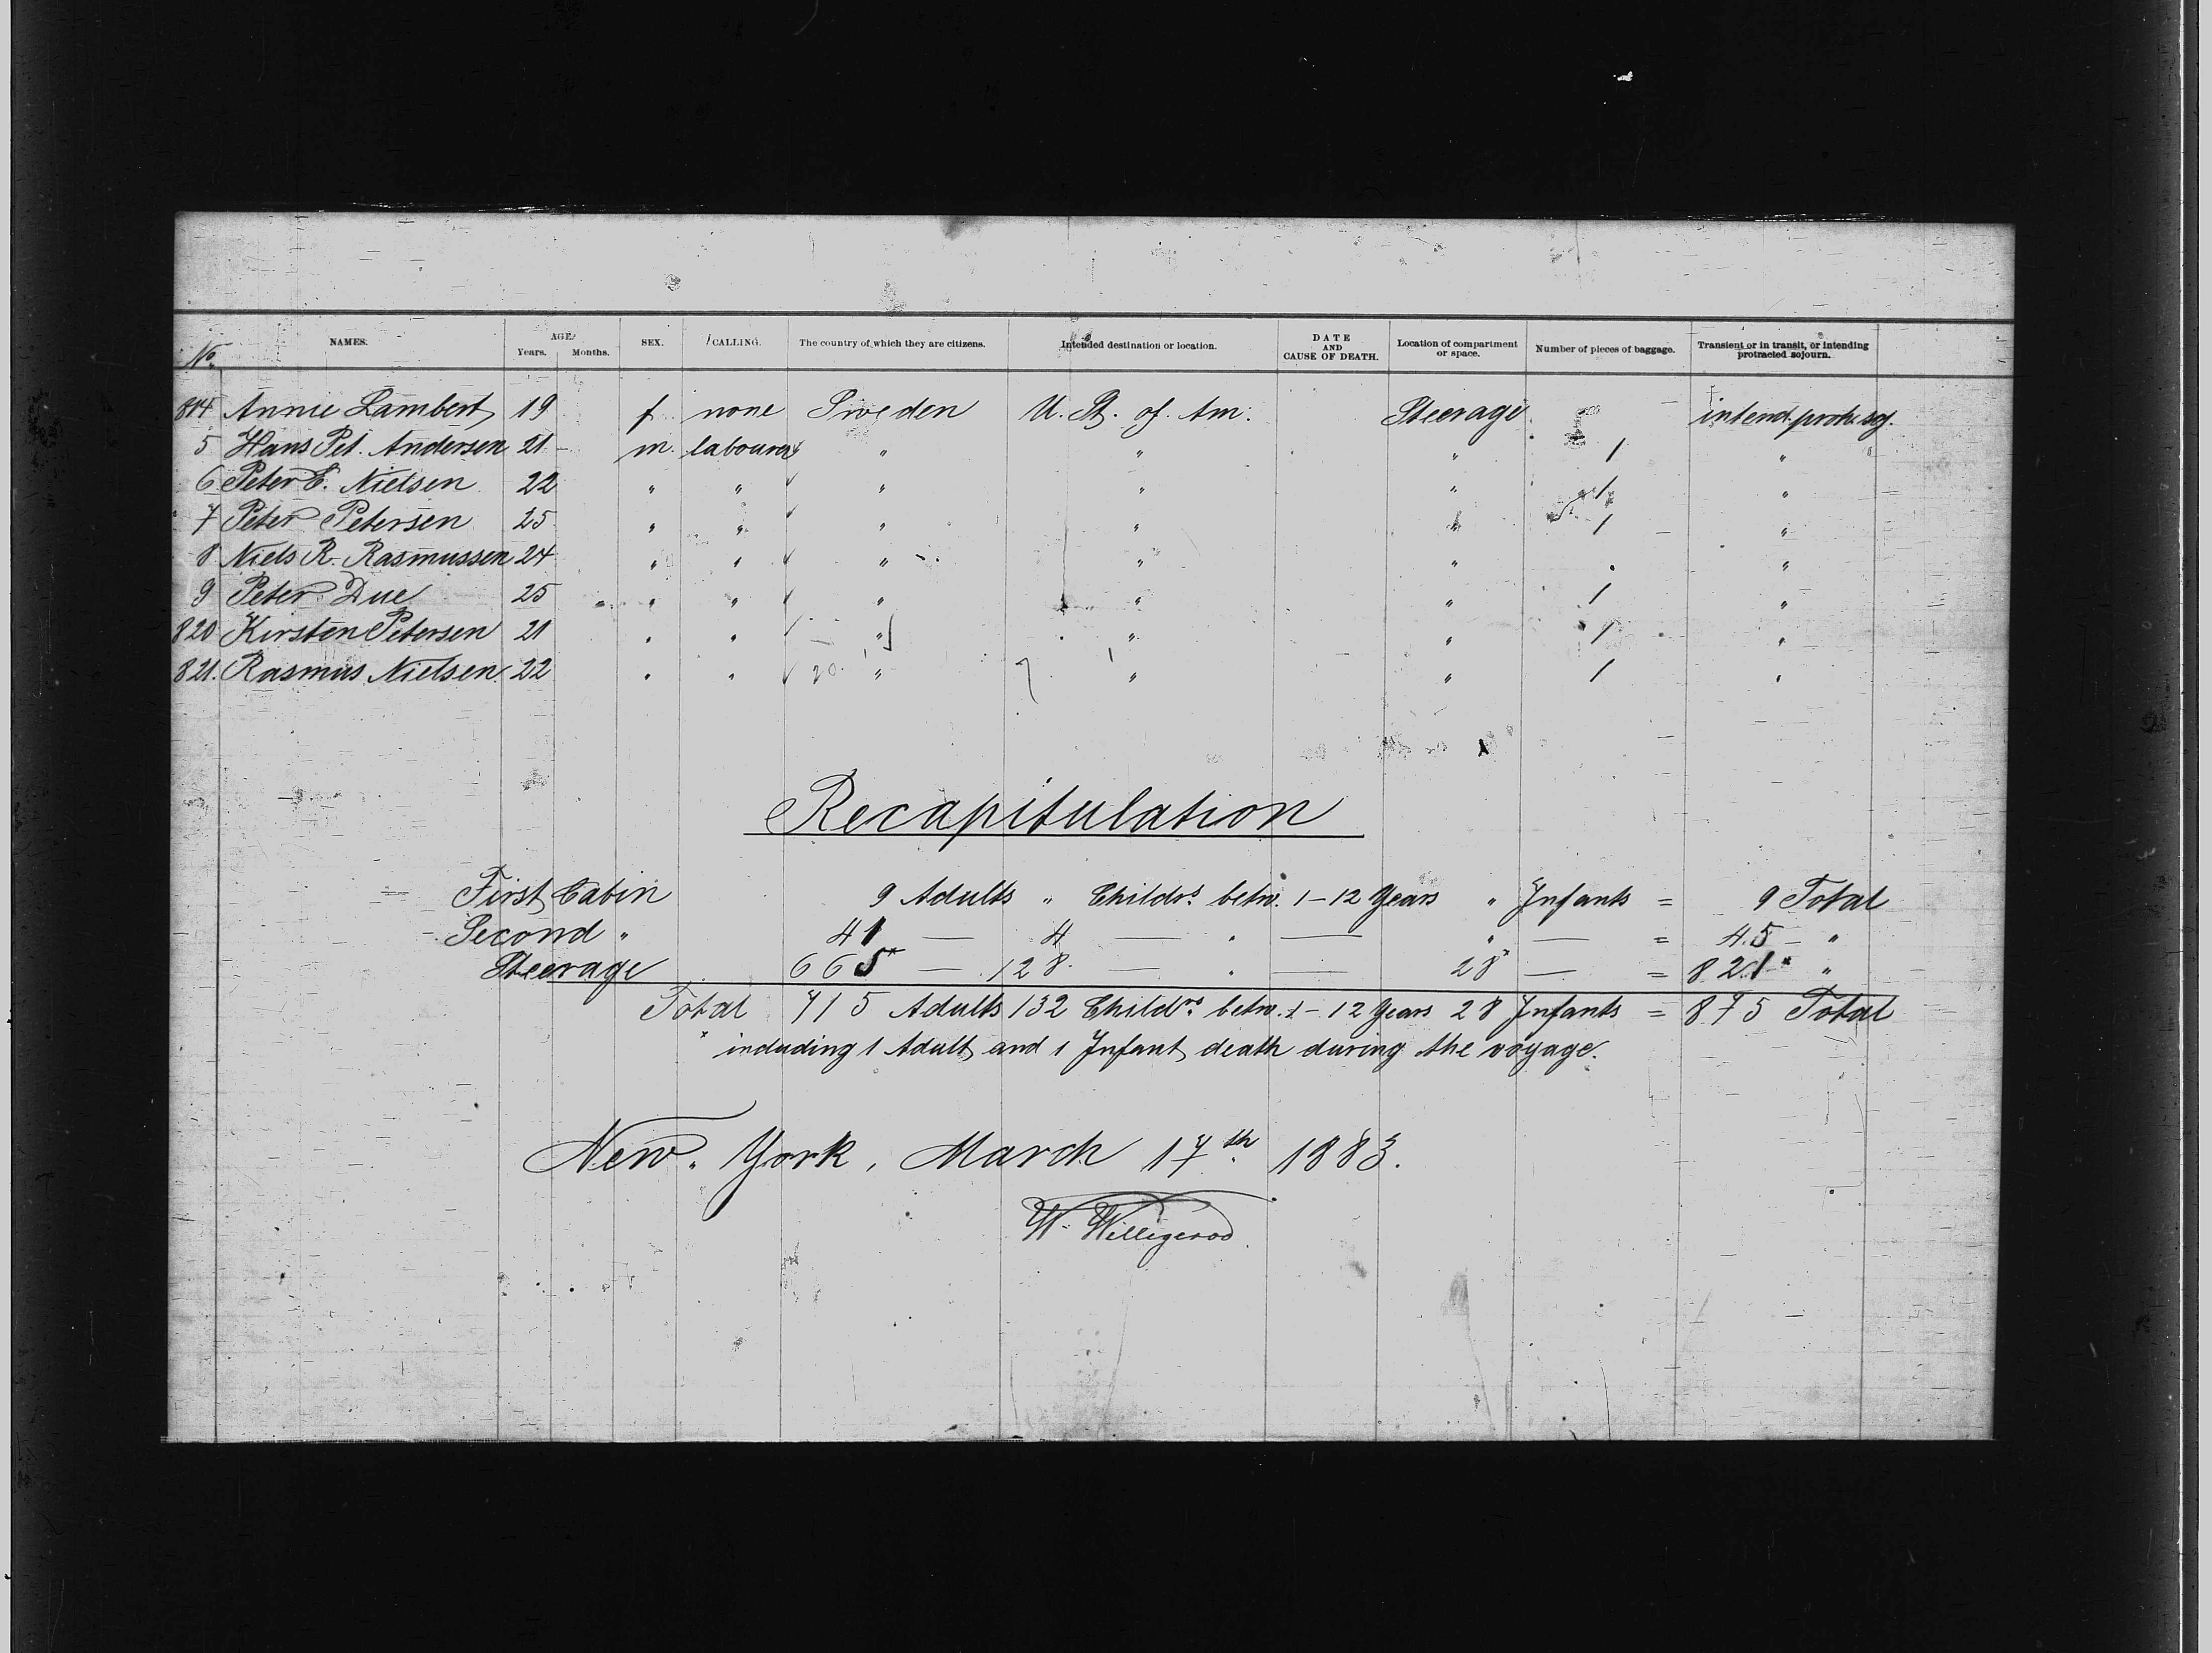 No. NAMES. AGE. Years. Months. SEX. CALLING. The country of which they are citizens. Intended destination or location. DATE AND CAUSE OF DEATH. Location of compartment or space. Number of pieces of baggage. Transient or in transit, or intending protracted sojourn.
814 Annie Lambert 19 f none Sweden U. St. of. Am. Steerage intend. protr. soj.
5 Hans Pet. Andersen 21 m. labourer " " " 1 "
6 Peter E. Nielsen 22 " " " " " 1 "
7 Peter Petersen 25 " " " " " 1 "
8 Niels R. Rasmussen 24 " " " " " "
9 Peter Due 25 " " " " " 1 "
820 Kirsten Petersen 21 " " " " " 1 "
821. Rasmus Nielsen 22 " " 20. " " " 1 "
Recapitulation
First Cabin 9 Adults " Childrs. betw. 1-12 Years " Infants = 9 Total
Second " 41 — 4 — " — " — = 45 — "
Steerage 665* — 128. — " — 28* — = 821* "
Total 715 Adults 132 Childrs. betw. 1-12 Years 28 Infants = 875 Total
* including 1 Adult and 1 Infant death during the voyage.
New-York, March 17th 1883.
W. Willigerod